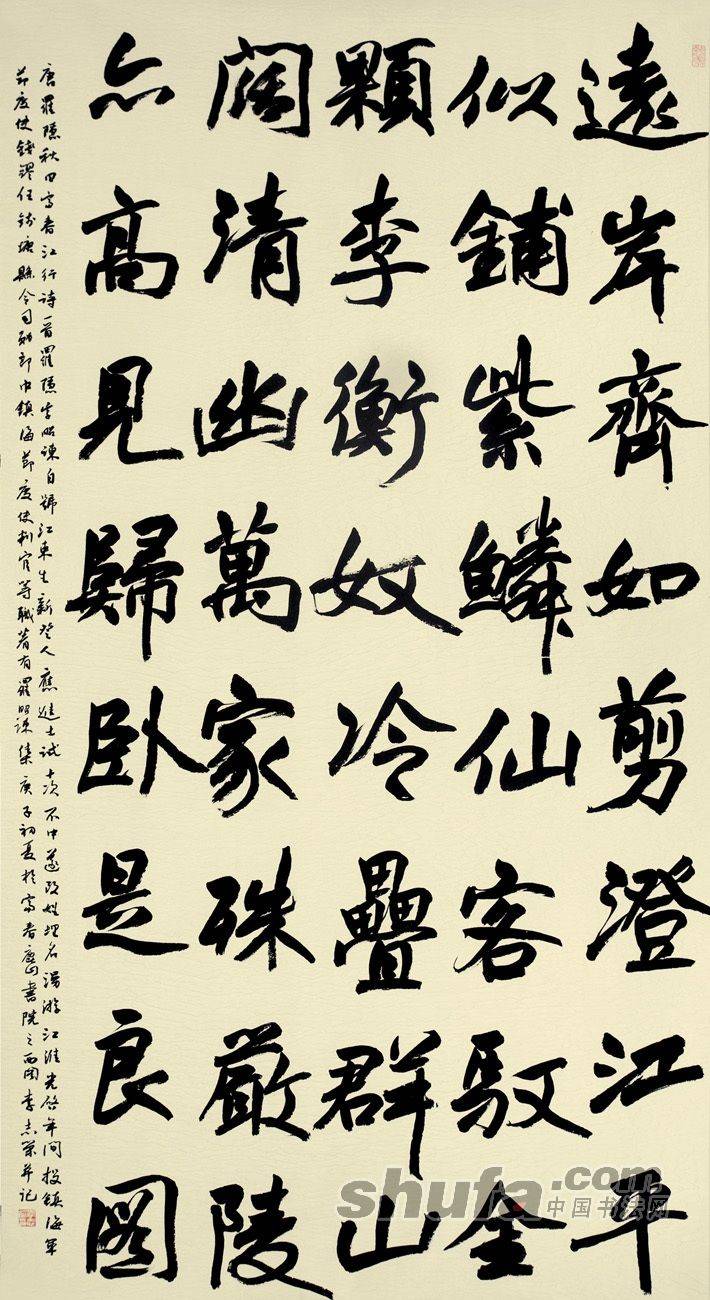 遠岸齊如剪澄江平
似鋪紫鱗仙客馭金
顆李衡奴冷疊群山
闊清幽萬家殊嚴陵
亦高見歸卧是良圖
唐羅隱秋日富春江行詩一首羅隱字昭諫自號江東生新登人應進士試十次不中遂改姓埋名漫游江淮光啓年間投鎮海軍
節度使錢鏐任錢塘縣令司勛郎中鎮海節度使判官等職著有羅昭諫集庚子初夏於富春書院之西李志榮并記
shufa.com
中国书法网